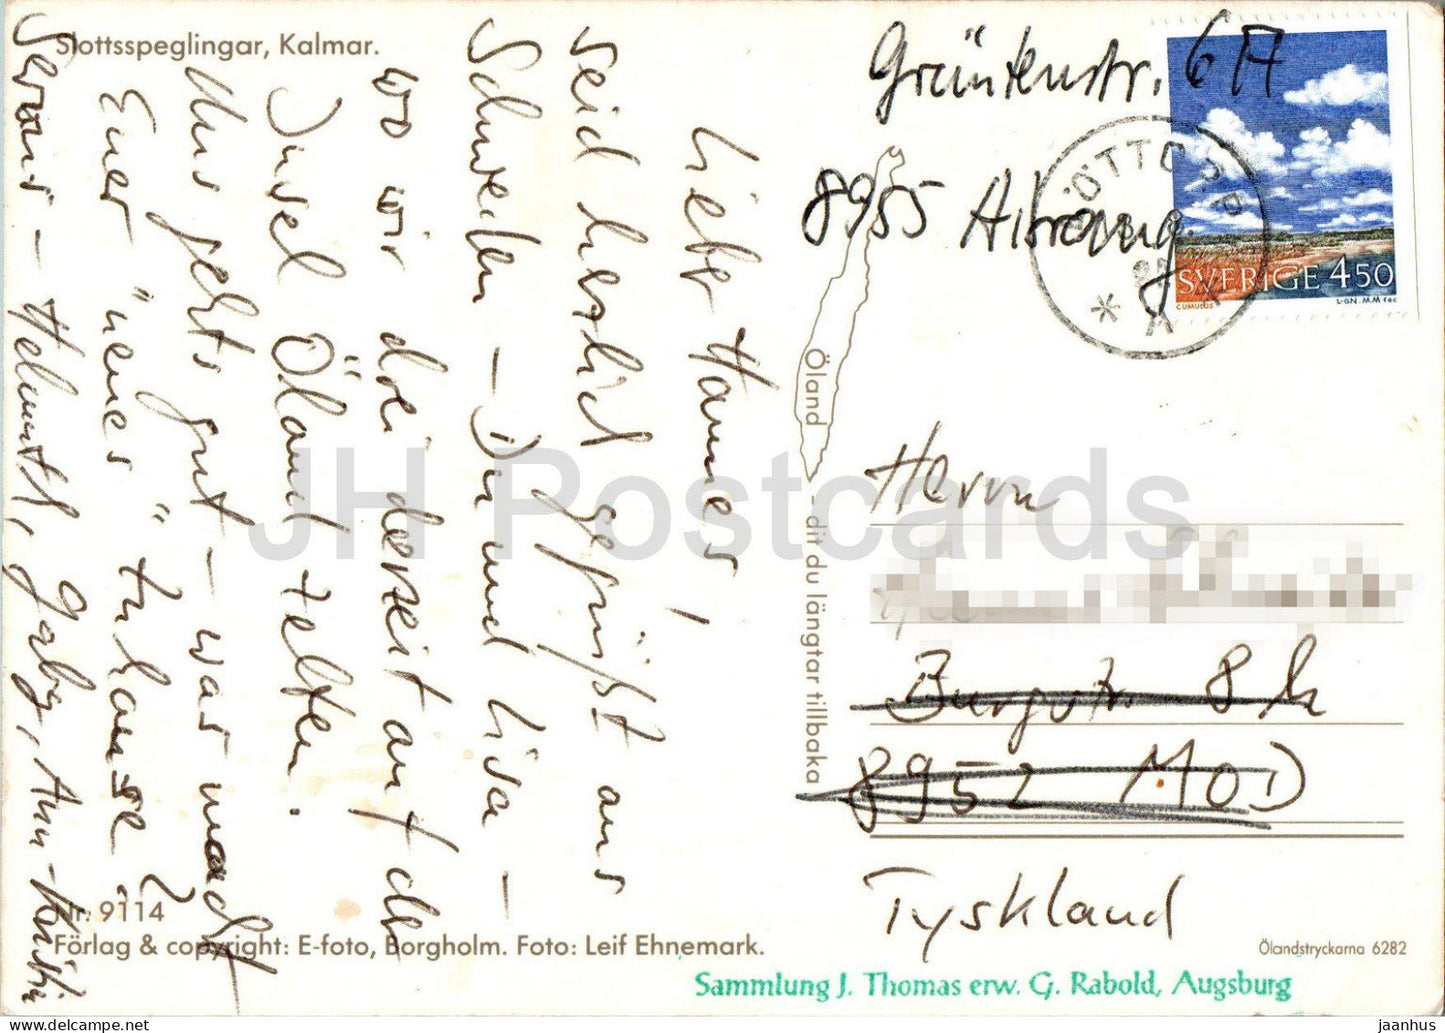 Slottsspeglingar, Kalmar.
Liebe Hannes!
Seid herzlich gegrüßt aus
Schweden - Du und Lisa -
wo wir drei derzeit auf der
Insel Öland zelten.
Uns geht's gut - was macht
Euer "neues" Zuhause?
Servus - Helmuth, Gaby, Ann-Kristin
Nr. 9114
Förlag & copyright: E-foto, Borgholm. Foto: Leif Ehnemark.
Öland - dit du längtar tillbaka
Grüntenstr. 6A
8955 Aitrang
SVERIGE 450
CUMULUS
L-GN. M.M fec
KÖTTORP
Herrn
Burgstr. 8
8952 MOD
Tyskland
Ölandstryckarna 6282
Sammlung J. Thomas erw. G. Rabold, Augsburg
JH Postcards
jaanhus@delcampe.net